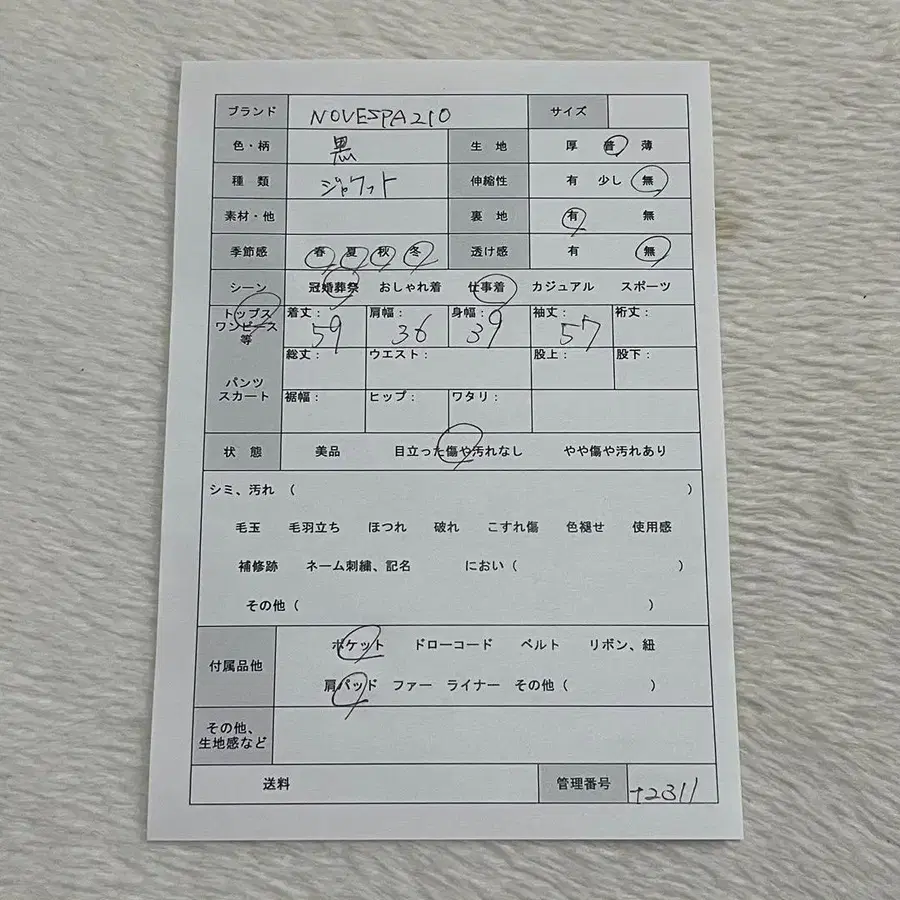 ブランド NOVESPA210 サイズ
色・柄 黒 生地 厚 普 薄
種類 ジャケット 伸縮性 有 少し 無
素材・他 裏地 有 無
季節感 春 夏 秋 冬 透け感 有 無
シーン 冠婚葬祭 おしゃれ着 仕事着 カジュアル スポーツ
トップス
ワンピース
等
着丈：59 肩幅：36 身幅：39 袖丈：57 裄丈：
総丈： ウエスト： 股上： 股下：
パンツ
スカート
裾幅： ヒップ： ワタリ：
状態 美品 目立った傷や汚れなし やや傷や汚れあり
シミ、汚れ（ ）
毛玉 毛羽立ち ほつれ 破れ こすれ傷 色褪せ 使用感
補修跡 ネーム刺繍、記名 におい（ ）
その他（ ）
付属品他
ポケット ドローコード ベルト リボン、紐
肩パッド ファー ライナー その他（ ）
その他、
生地感など
送料 管理番号 +2311